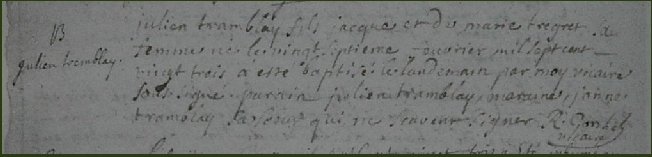 B
julien tremblay.
julien tramblay fils jacque et de marie tregret sa
femme né le vingt septieme fevrier mil sept cent
vingt trois a esté baptisé le landemain par moy vicaire
sous signé parain julien tramblay, maraine, janne
tramblay sa soeur qui ne scaveut signer R.
vicaire